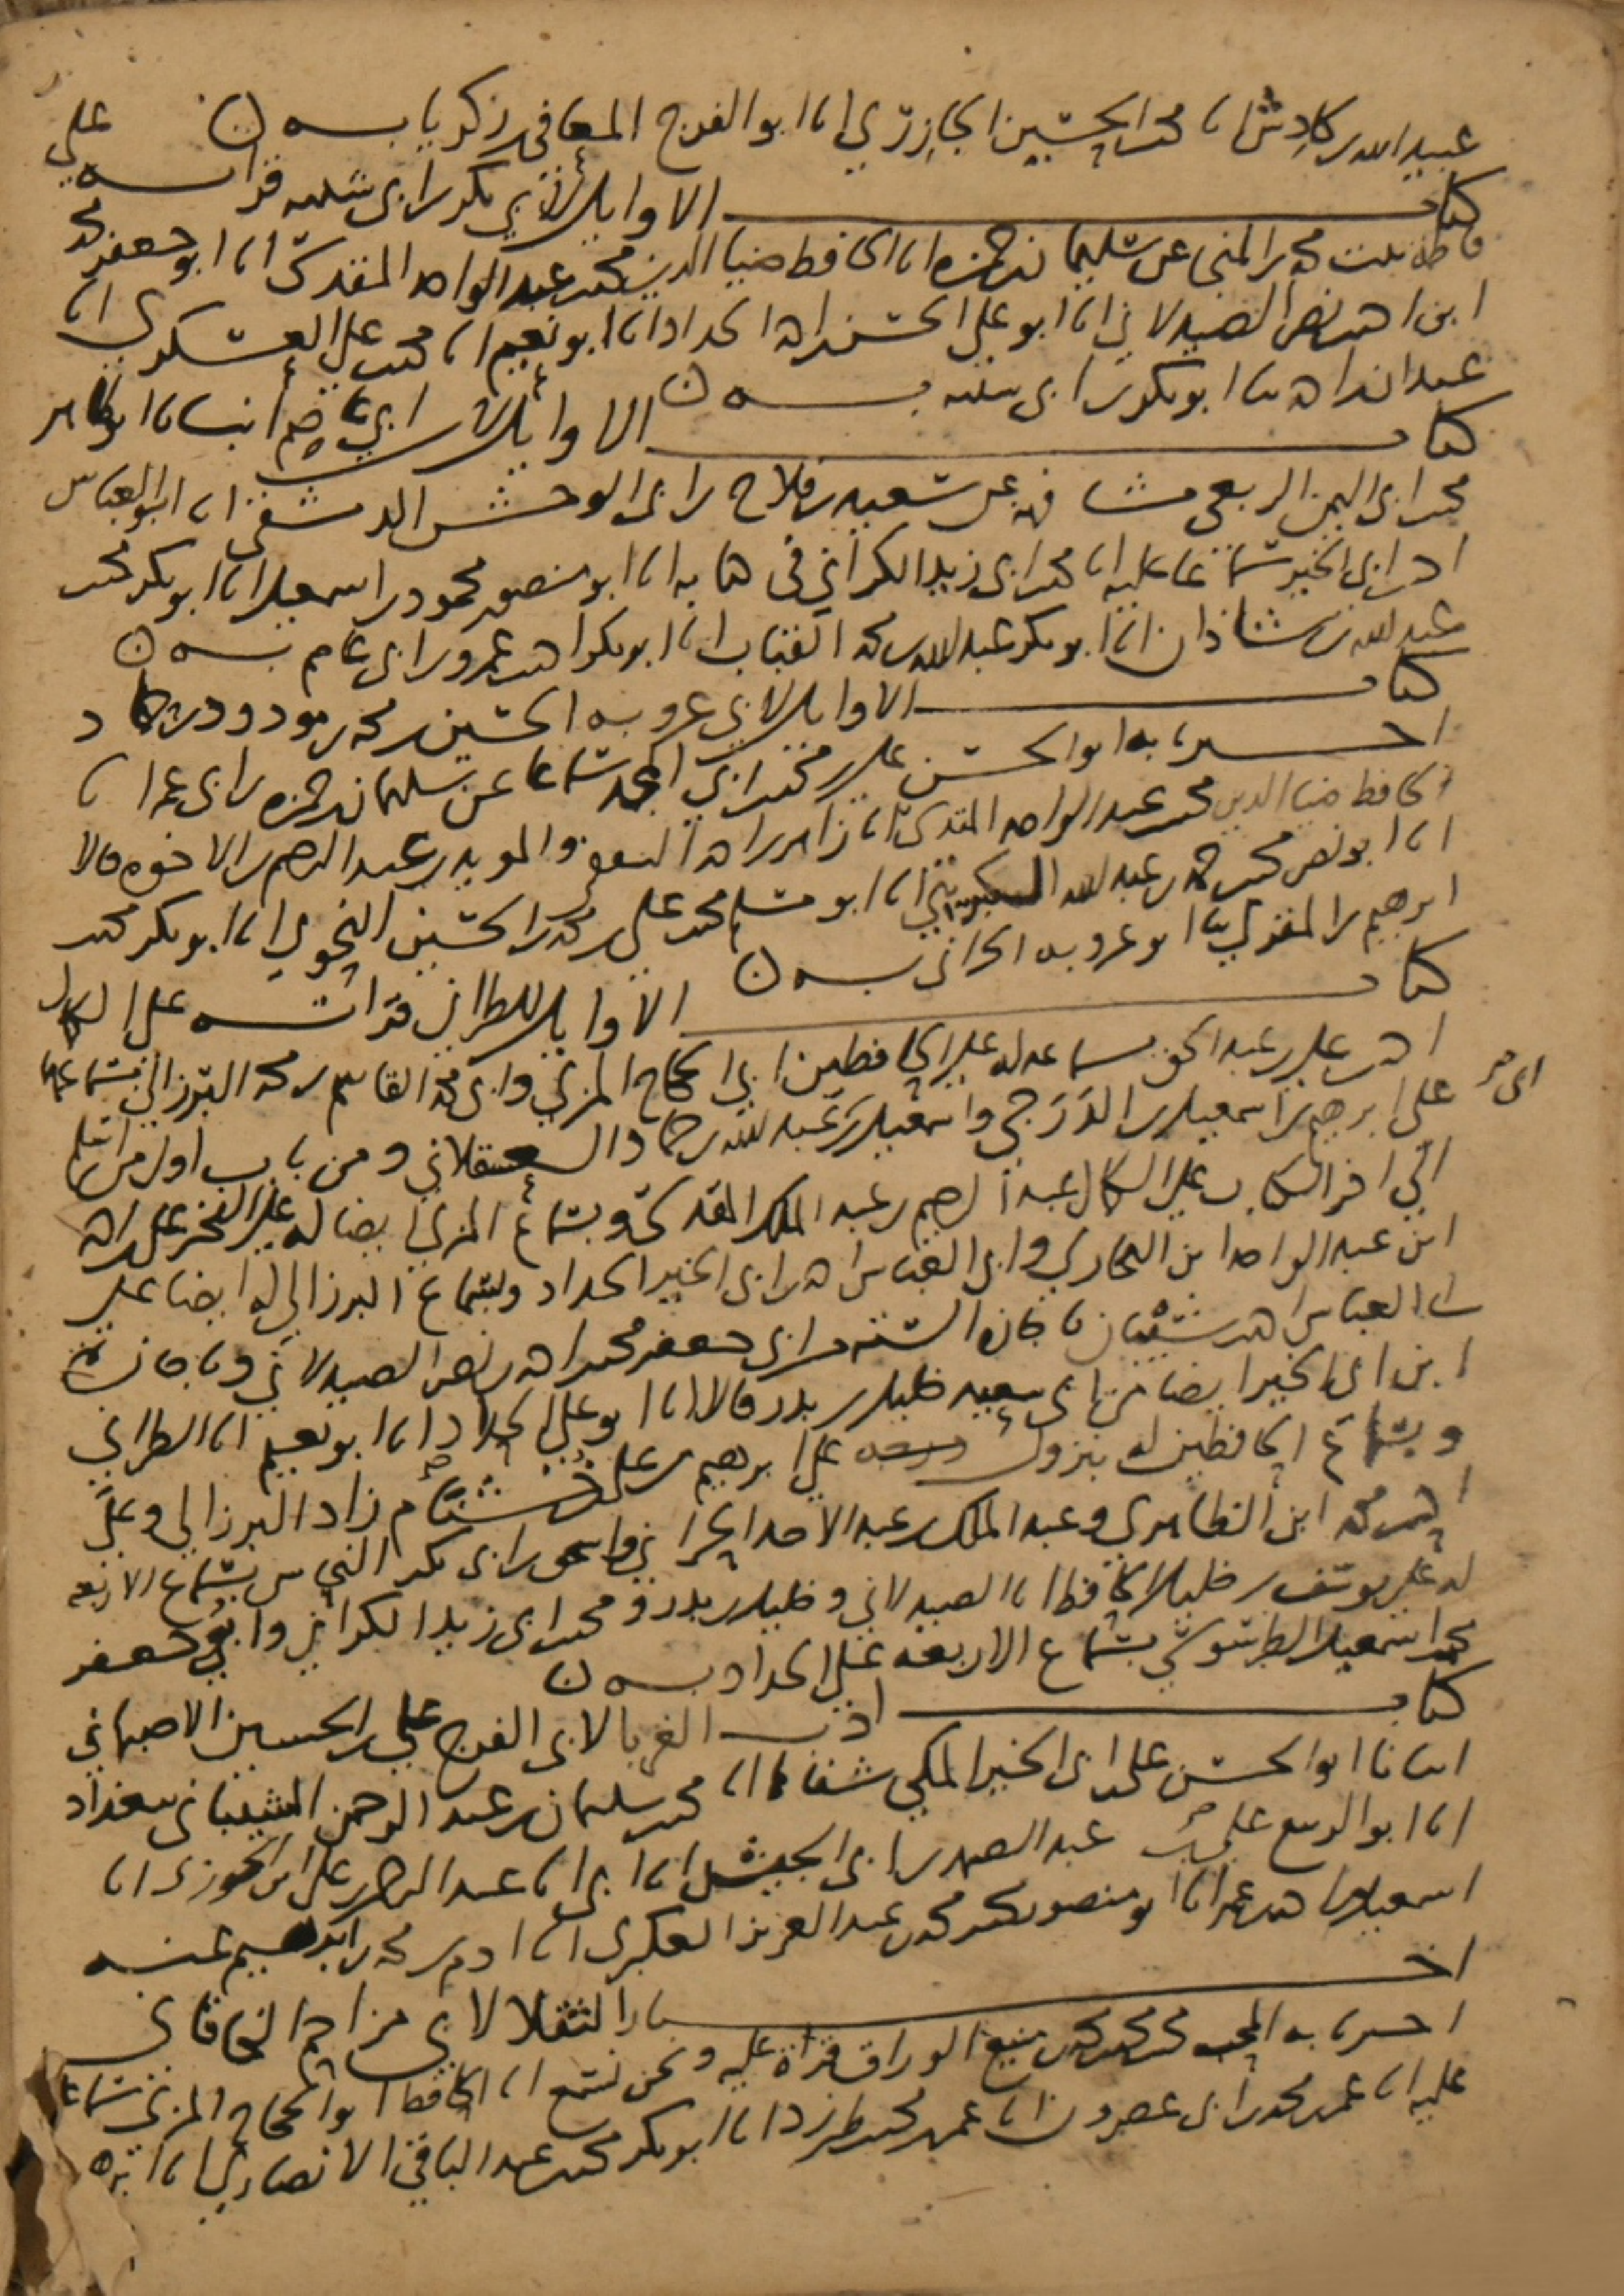 عبيد الله بن كادش انا محمد بن الحسين الجازري انا ابو الفرج المعافى بن زكريا به ن
كتاب الاوايل لابي بكر بن ابي شيبه قراته على
فاطمة بنت محمد بن المنجى عن سليمان بن حمزه انا الحافظ ضيا الدين محمد بن عبد الواحد المقدسي انا ابو جعفر محمد
ابن احمد بن نصر الصيدلاني انا ابو علي الحسن بن احمد الحداد انا ابو نعيم انا محمد بن علي العسكري انا
عبد الله بن احمد نا ابو بكر بن ابي شيبه به ن
كتاب الاوايل لابن ابي عاصم انبانا ابو طاهر
محمد بن ابي اليمن الربعي مشافهة عن سعيد بن فلاح بن ابي الوحش الدمشقي انا ابو العباس
احمد بن ابي الخير سماعا عليه انا محمد بن ابي زيد الكراني في كتابه انا ابو منصور محمود بن اسمعيل انا ابو بكر محمد بن
عبد الله بن شاذان انا ابو بكر عبد الله بن محمد القباب انا ابو بكر احمد بن عمرو بن ابي عاصم به ن
كتاب الاوايل لابي عروبه الحسين بن محمد بن مودود بن حماد
اخبرنا به ابو الحسن علي بن محمد بن ابي المجد سماعا عن سليمان بن حمزه بن ابي عمر انا
الحافظ ضيا الدين محمد بن عبد الواحد المقدسي انا زاهر بن احمد الثقفي والمويد بن عبد الرحيم بن الاخوه قالا
انا ابو نصر محمد بن حمد بن عبد الله الكبريتي انا ابو مسلم محمد بن علي بن محمد بن الحسين النحوي انا ابو بكر محمد بن
ابرهيم بن المقري نا ابو عروبه الحراني به ن
كتاب الاوايل للطبراني قراته على الكمال
احمد بن علي بن عبد الحق بسماعه له على الحافظين ابي الحجاج المزي وابي محمد القاسم بن محمد البرزالي بسماعهما
على ابرهيم بن اسمعيل بن الدرجي واسمعيل بن عبد الله بن حماد العسقلاني ومن باب اول من اسلم
الى اخر الكتاب على الكمال عبد الرحيم بن عبد الملك المقدسي وبسماع المزي ايضا له على الفخر علي بن احمد
ابن عبد الواحد ابن البخاري وابي العباس احمد بن ابي الخير الحداد وبسماع البرزالي له ايضا على
ابي العباس احمد بن شيبان باجازة الستة من ابي جعفر محمد بن احمد بن نصر الصيدلاني وباجازة
ابن ابي الخير ايضا من ابي سعيد خليل بن بدر قالا انا ابو علي الحداد انا ابو نعيم انا الطبراني
وبسماع الحافظين له بنزول على ابرهيم بن علي بن خشنام زاد البرزالي وعلى
احمد بن محمد ابن الظاهري وعبد الملك بن عبد الاحد الحراني واسحق بن ابي بكر النحاس بسماع الاربعه
له على يوسف بن خليل الحافظ انا الصيدلاني وخليل بن بدر ومحمد بن ابي زيد الكراني وابو جعفر
محمد بن اسمعيل الطرسوسي بسماع الاربعه على الحداد به ن
كتاب ادب الغربا لابي الفرج علي بن الحسين الاصبهاني
انبانا ابو الحسن علي بن ابي الخير المكي شفاها انا محمد بن سليمان بن عبد الرحمن الشيباني ببغداد
انا ابو الربيع علي بن عبد الصمد بن ابي الجيش انا ابي انا عبد الرحمن بن علي ابن الجوزي انا
اسمعيل بن احمد بن عمر انا ابو منصور محمد بن محمد بن عبد العزيز العكبري انا ادم بن محمد بن ابرهيم عنه
اخبار الثقلا لابي مزاحم الخاقاني
اخبرنا به المحب محمد بن محمد بن محمد بن منيع الوراق قراة عليه ونحن نسمع انا الحافظ ابو الحجاج المزي سماعا
عليه انا عمر بن محمد بن ابي عصرون انا عمر بن محمد بن طبرزد انا ابو بكر محمد بن عبد الباقي الانصاري انا ابو